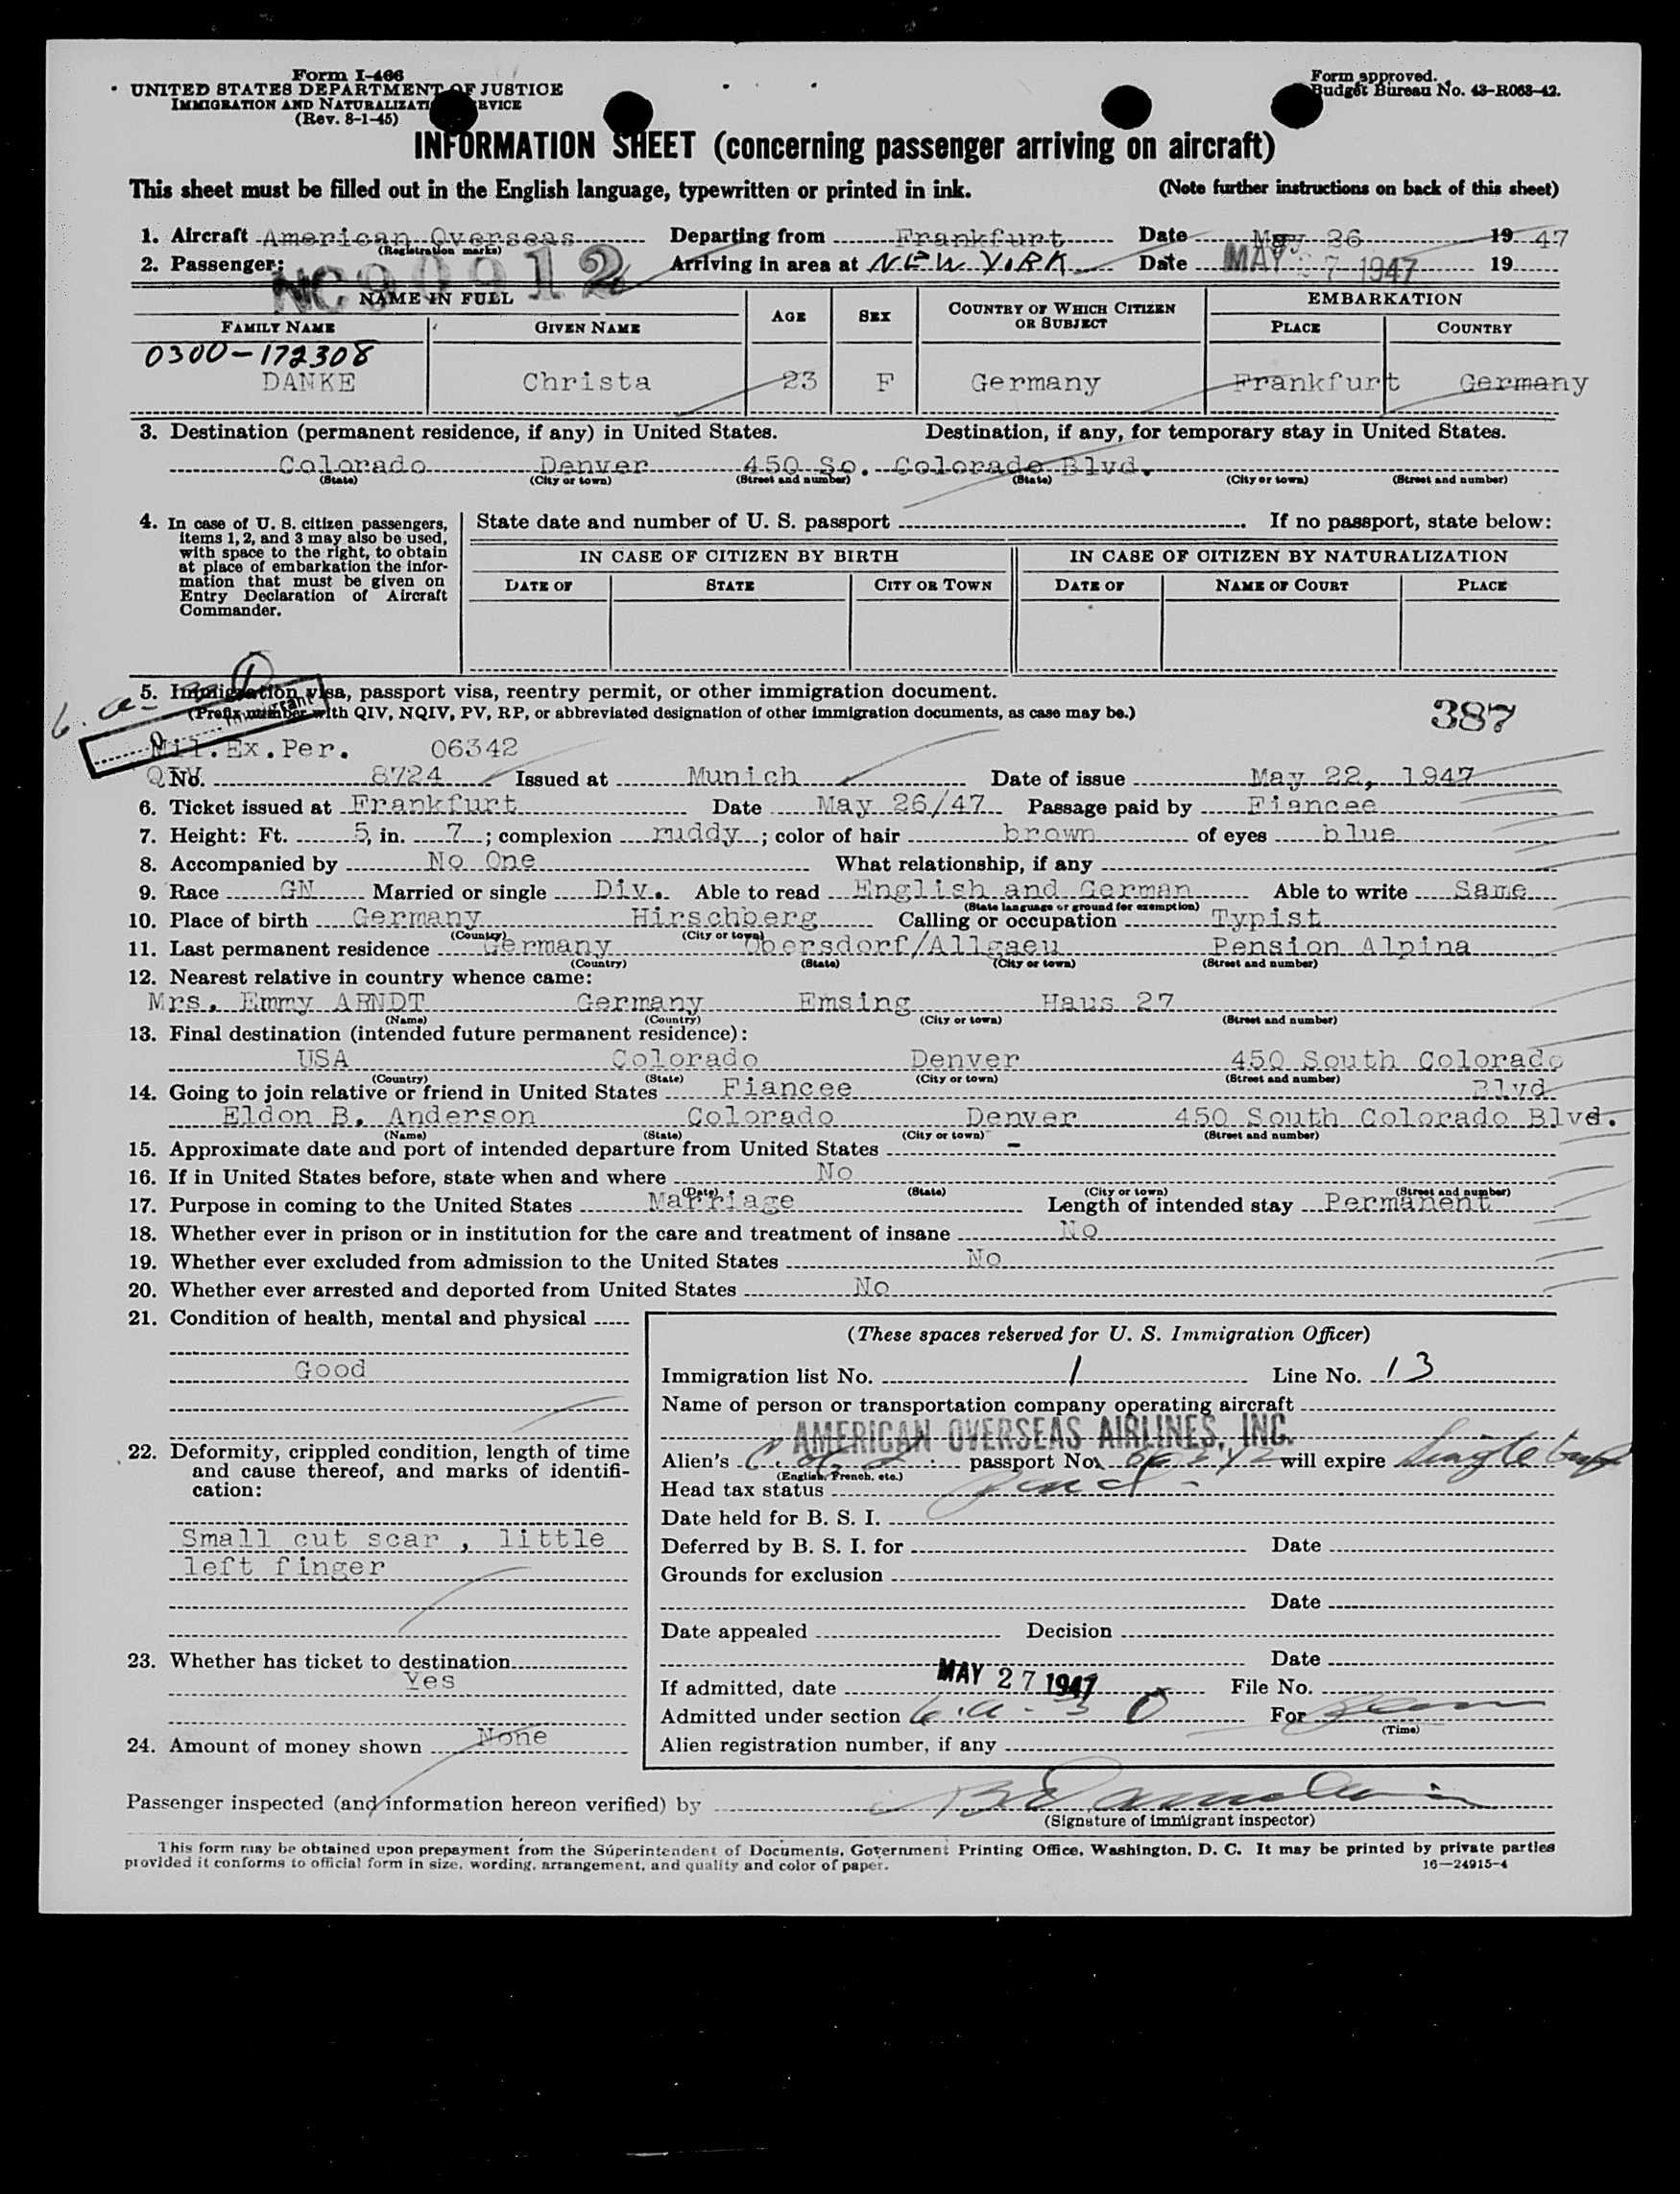 Form I-466
UNITED STATES DEPARTMENT OF JUSTICE
IMMIGRATION AND NATURALIZATI RVICE
(Rev. 8-1-45)
Form approved.
Budget Bureau No. 43-R063-42.
INFORMATION SHEET (concerning passenger arriving on aircraft)
This sheet must be filled out in the English language, typewritten or printed in ink. (Note further instructions on back of this sheet)
1. Aircraft American Overseas Departing from Frankfurt Date May 26 1947
(Registration marks)
2. Passenger: NC90912 Arriving in area at NEW YORK Date MAY 27 1947 19
NAME IN FULL AGE SEX COUNTRY OF WHICH CITIZEN OR SUBJECT EMBARKATION
FAMILY NAME GIVEN NAME PLACE COUNTRY
0300-172308
DANKE Christa 23 F Germany Frankfurt Germany
3. Destination (permanent residence, if any) in United States. Destination, if any, for temporary stay in United States.
Colorado Denver 450 So. Colorado Blvd.
(State) (City or town) (Street and number) (State) (City or town) (Street and number)
4. In case of U. S. citizen passengers, items 1, 2, and 3 may also be used, with space to the right, to obtain at place of embarkation the information that must be given on Entry Declaration of Aircraft Commander.
State date and number of U. S. passport . If no passport, state below:
IN CASE OF CITIZEN BY BIRTH IN CASE OF CITIZEN BY NATURALIZATION
DATE OF STATE CITY OR TOWN DATE OF NAME OF COURT PLACE
5. Immigration visa, passport visa, reentry permit, or other immigration document.
(Prefix number with QIV, NQIV, PV, RP, or abbreviated designation of other immigration documents, as case may be.)
387
Mil.Ex.Per. 06342
QIV No. 8724 Issued at Munich Date of issue May 22, 1947
6. Ticket issued at Frankfurt Date May 26/47 Passage paid by Fiancee
7. Height: Ft. 5, in. 7; complexion ruddy; color of hair brown of eyes blue
8. Accompanied by No One What relationship, if any
9. Race GN Married or single Div. Able to read English and German Able to write Same
(State language or ground for exemption)
10. Place of birth Germany Hirschberg Calling or occupation Typist
(Country) (City or town)
11. Last permanent residence Germany Obersdorf/Allgaeu Pension Alpina
(Country) (State) (City or town) (Street and number)
12. Nearest relative in country whence came:
Mrs. Emmy ARNDT Germany Emsing Haus 27
(Name) (Country) (City or town) (Street and number)
13. Final destination (intended future permanent residence):
USA Colorado Denver 450 South Colorado
(Country) (State) (City or town) (Street and number)
14. Going to join relative or friend in United States Fiancee Blvd
Eldon B. Anderson Colorado Denver 450 South Colorado Blvd.
(Name) (State) (City or town) (Street and number)
15. Approximate date and port of intended departure from United States -
16. If in United States before, state when and where No
(Date) (State) (City or town) (Street and number)
17. Purpose in coming to the United States Marriage Length of intended stay Permanent
18. Whether ever in prison or in institution for the care and treatment of insane No
19. Whether ever excluded from admission to the United States No
20. Whether ever arrested and deported from United States No
21. Condition of health, mental and physical
Good
22. Deformity, crippled condition, length of time and cause thereof, and marks of identification:
Small cut scar , little
left finger
23. Whether has ticket to destination
Yes
24. Amount of money shown None
(These spaces reserved for U. S. Immigration Officer)
Immigration list No. 1 Line No. 13
Name of person or transportation company operating aircraft
AMERICAN OVERSEAS AIRLINES, INC.
Alien's passport No. will expire
(English, French, etc.)
Head tax status
Date held for B. S. I.
Deferred by B. S. I. for Date
Grounds for exclusion
Date
Date appealed Decision
Date
If admitted, date MAY 27 1947 File No.
Admitted under section 6.a-3 For
(Time)
Alien registration number, if any
Passenger inspected (and information hereon verified) by
(Signature of immigrant inspector)
This form may be obtained upon prepayment from the Superintendent of Documents, Government Printing Office, Washington, D. C. It may be printed by private parties
provided it conforms to official form in size, wording, arrangement, and quality and color of paper. 16—24915-4